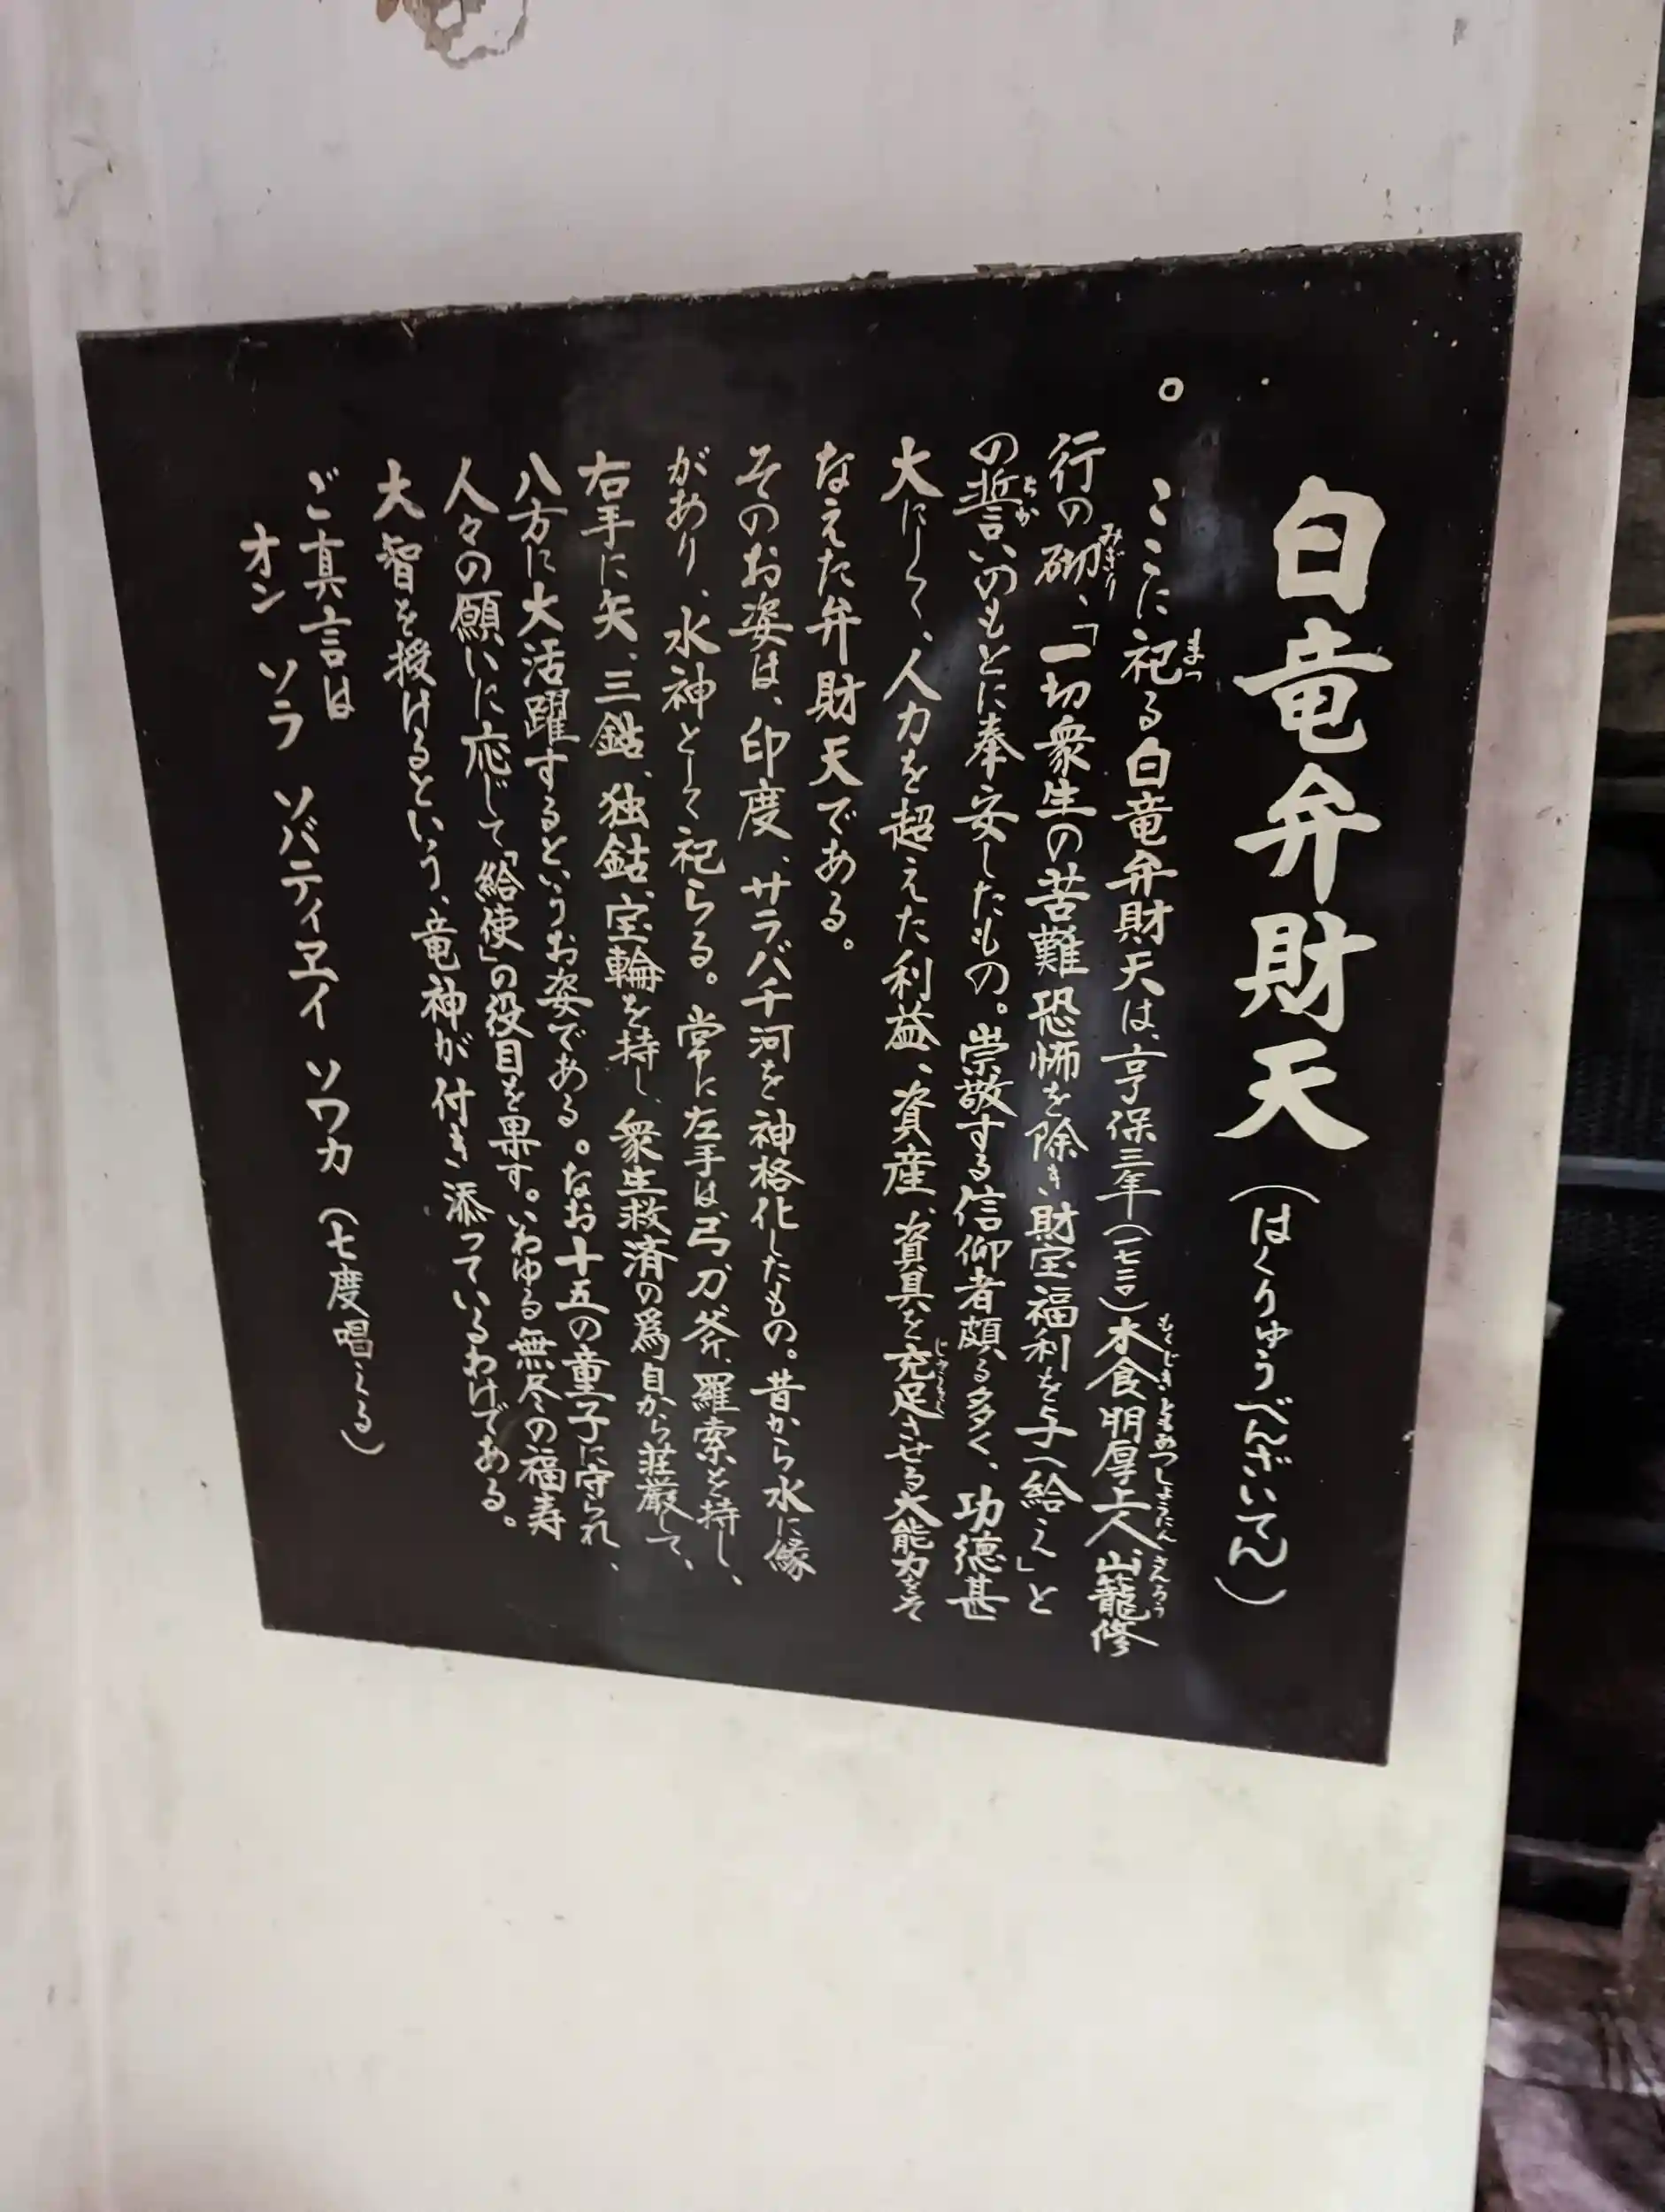 白竜弁財天（はくりゅうべんざいてん）
。ここに祀る白竜弁財天は、享保三年（一七一八）木食明厚上人、山籠修
行の砌、「一切衆生の苦難恐怖を除き、財宝福利を与へ給え」と
の誓いのもとに奉安したもの。崇敬する信仰者頗る多く、功徳甚
大にして、人力を超えた利益、資産、資具を充足させる大能力をそ
なえた弁財天である。
そのお姿は、印度、サラバチ河を神格化したもの。昔から水に縁
があり、水神として祀らる。常に左手は、弓、刀、斧、羅索を持し、
右手に矢、三鈷、独鈷、宝輪を持し、衆生救済の為自から荘厳して、
八方に大活躍するというお姿である。なお十五の童子に守られ、
人々の願いに応じて「給使」の役目を果す。いわゆる無尽の福寿
大智を授けるという、竜神が付き添っているわけである。
ご真言は
オン ソラ ソバティヱイ ソワカ（七度唱える）